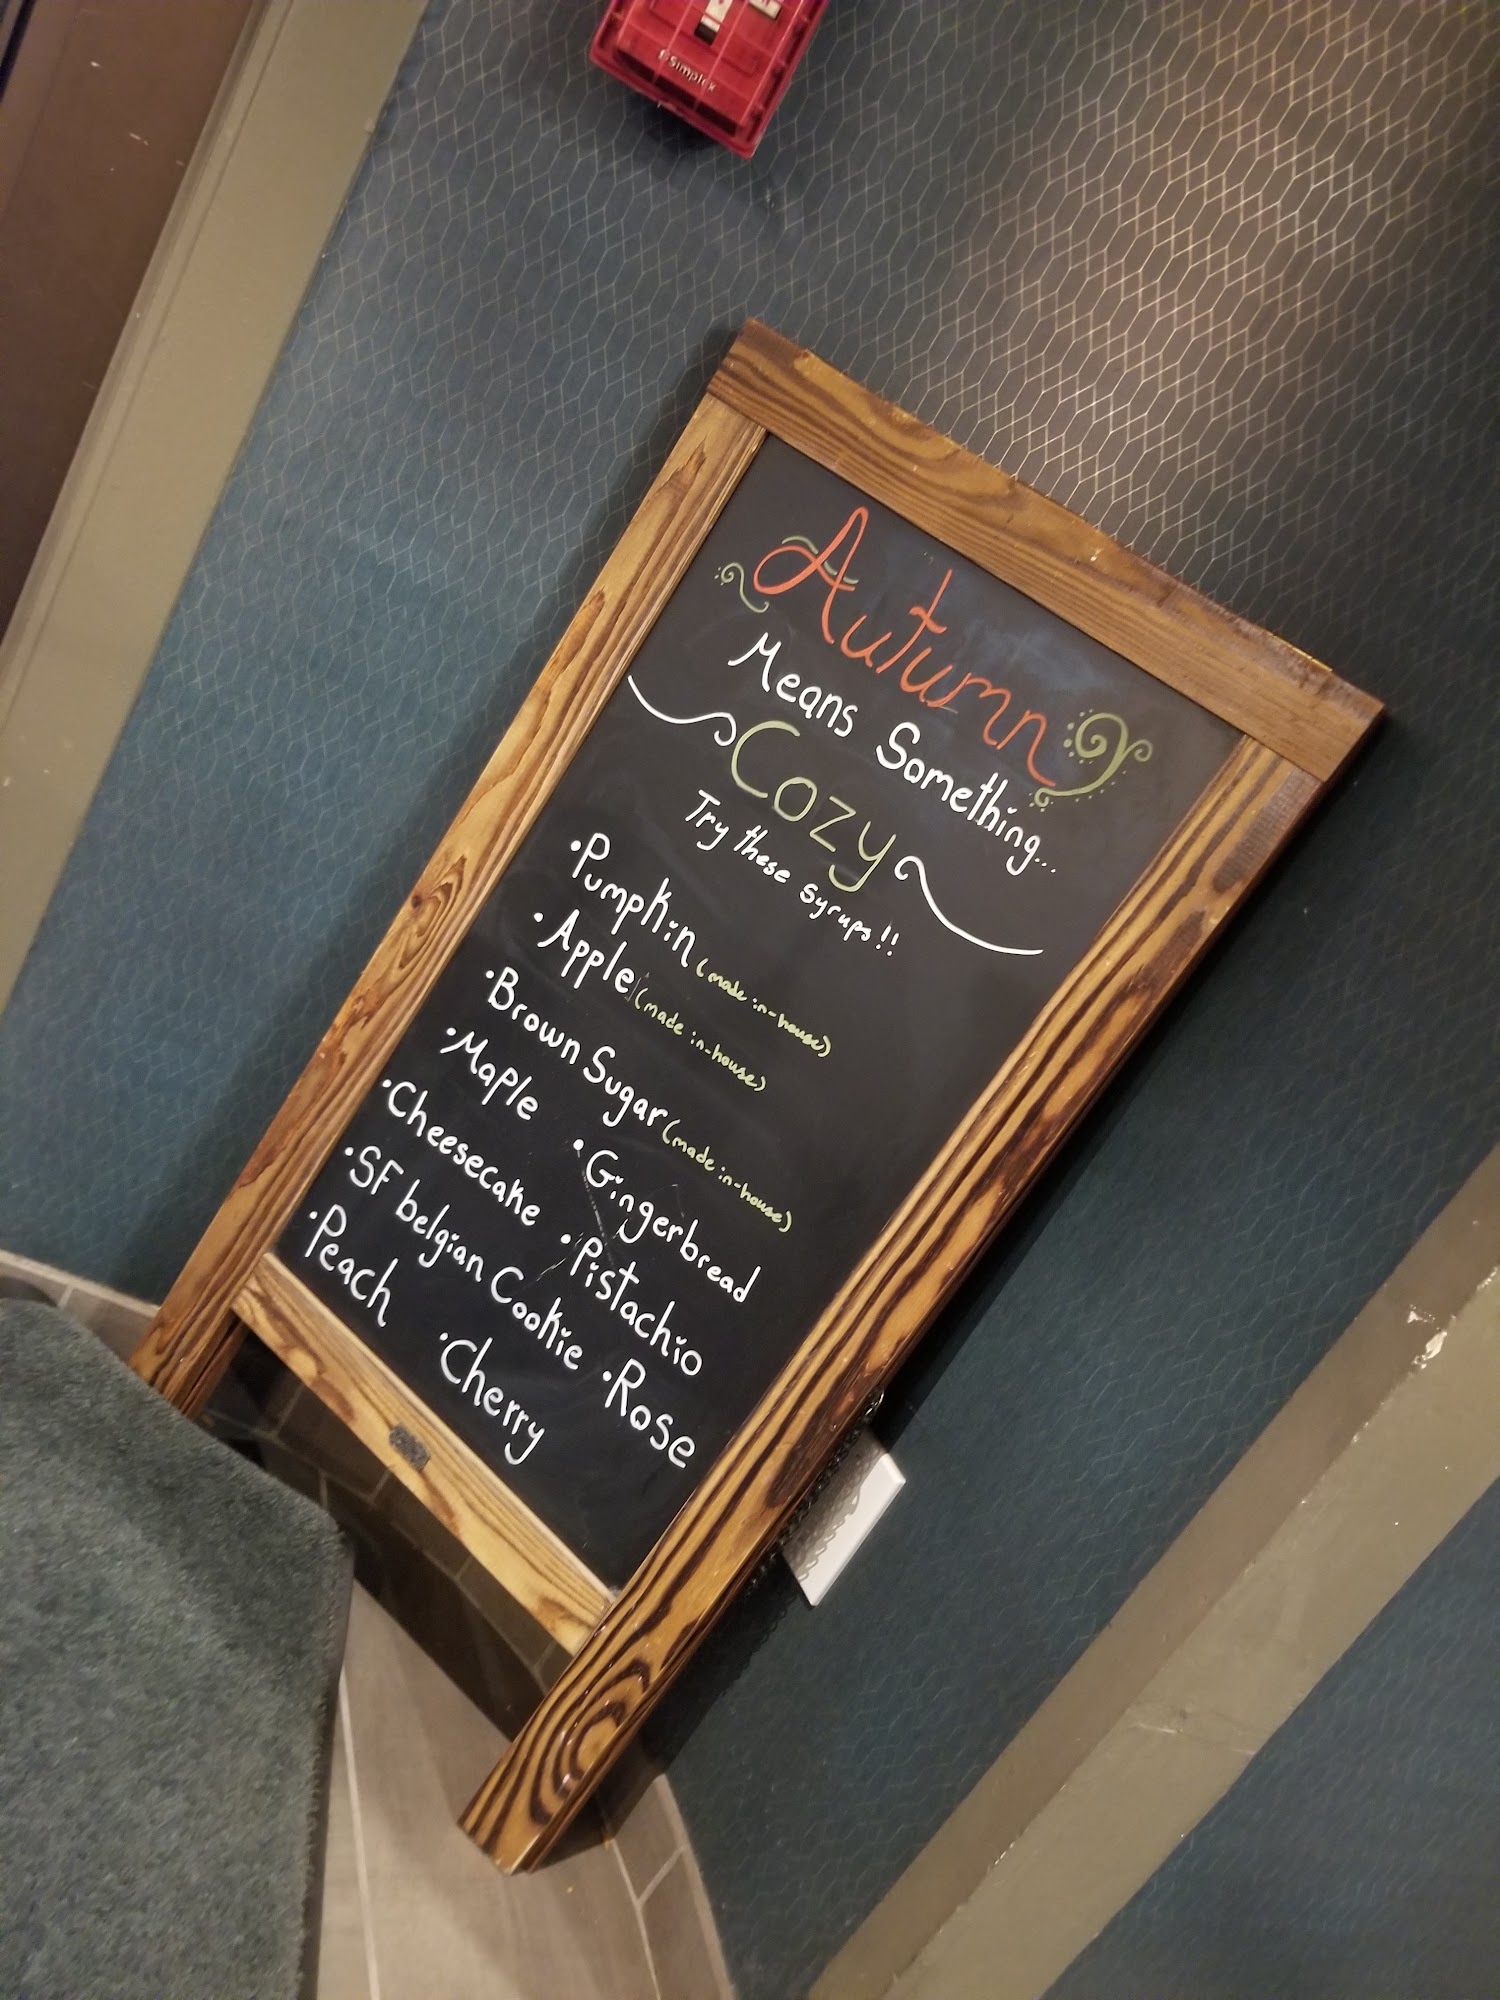 Simplex
Autumn
Means Something...
Cozy
Try these syrups!!
•Pumpkin (made in-house)
•Apple (made in-house)
•Brown Sugar (made in-house)
•Maple •Gingerbread
•Cheesecake •Pistachio
•SF belgian Cookie •Rose
•Peach •Cherry